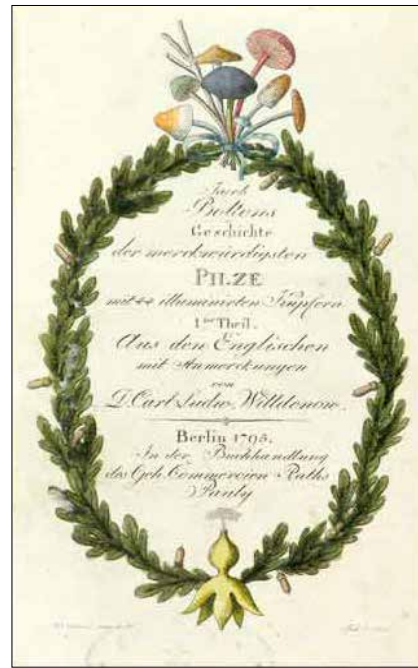 Jacob
Boltons
Geschichte
der merckwürdigsten
PILZE
mit 44 illuminirten Kupfern
1ster Theil.
Aus den Englischen
mit Anmerckungen
von
D. Carl Ludw. Willdenow.
Berlin 1795.
In der Buchhandlung
des Geh. Commercien Raths
Pauly